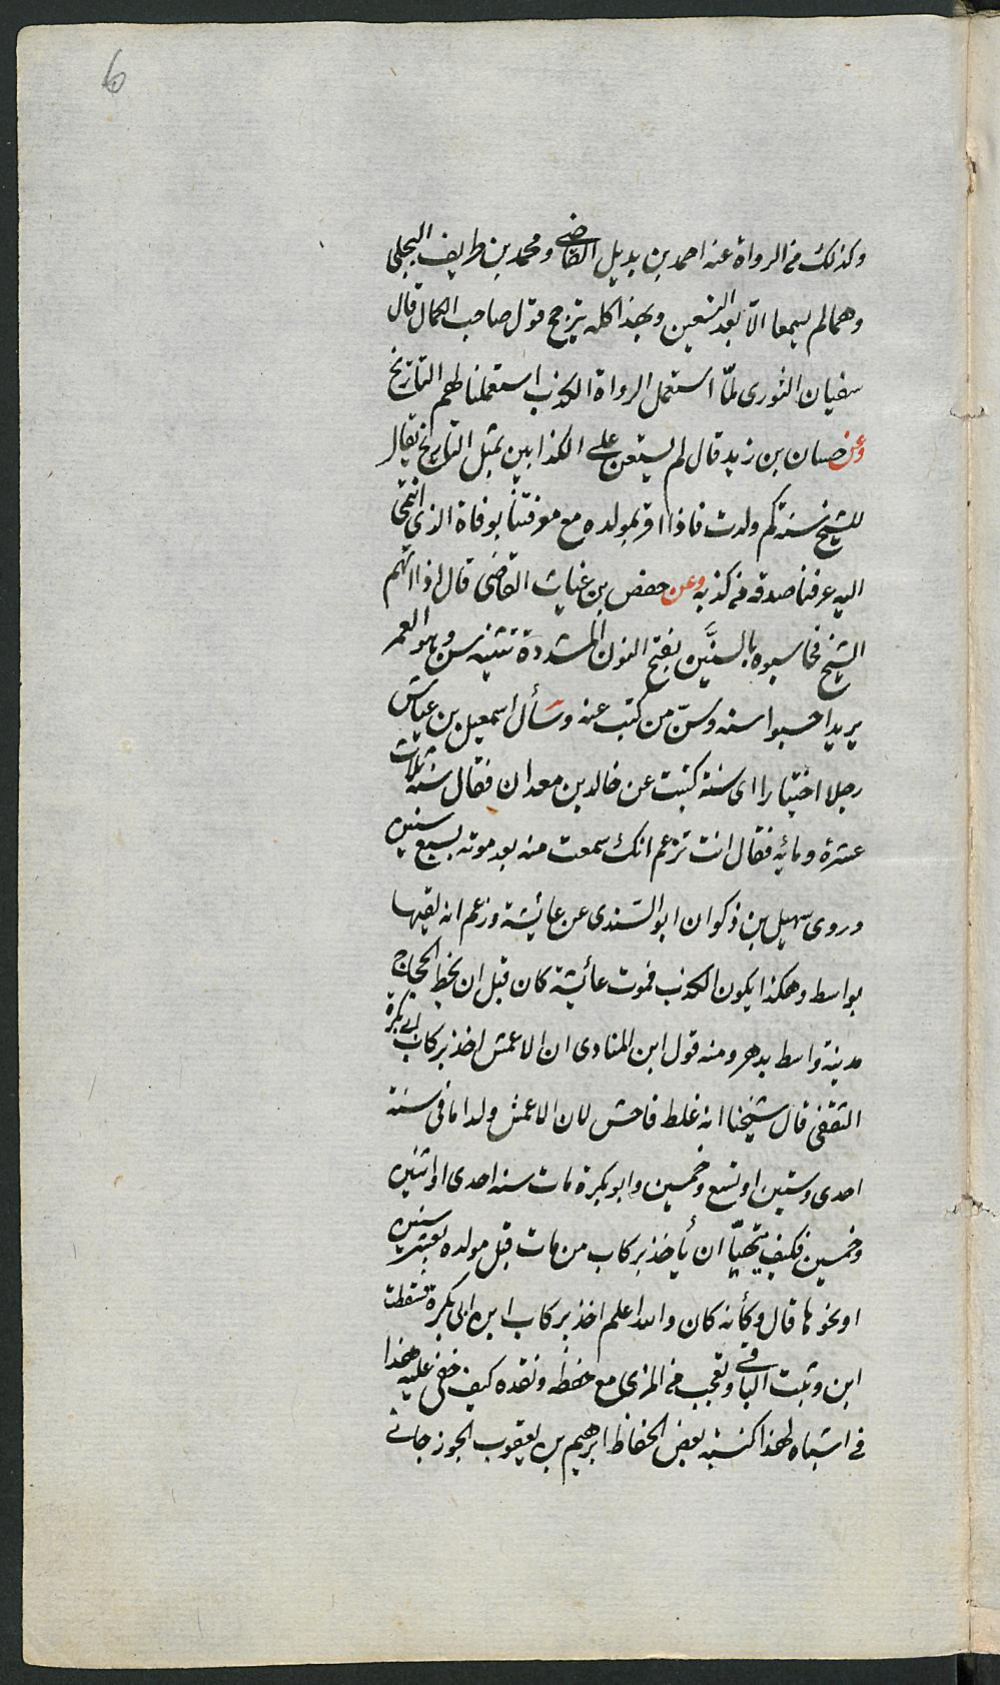 6
وكذلك في الرواة عنه احمد بن بديل القاضي ومحمد بن طريف البجلي
وهما لم يسمعا الاّ بعد التسعين وبهذا كله يترجح قول صاحب الكمال قال
سفيان الثورى لمّا استعمل الرواة الكذب استعملنا لهم التاريخ
وعن حسان بن زيد قال لم يستعن على الكذابين بمثل التاريخ يقال
للشيخ سنة كم ولدت فاذا اقر بمولده مع معرفتنا بوفاة الذى انتمى
اليه عرفنا صدقه من كذبه وعن حفص بن غياث القاضى قال اذا اتهم
الشيخ فحاسبوه بالسنَّين بفتح النون المشددة تثنيه سن وهو العمر
يريد احسبوا سنه وسنّ من كتب عنه وسأل اسمعيل بن عياش
رجلا اختبارا اى سنة كتبت عن خالد بن معدان فقال سنة ثلاث
عشرة ومائه فقال انت تزعم انك سمعت منه بعد موته بسبع سنين
وروى سهيل بن ذكوان ابو السّندى عن عائيشة وزعم انه لقيها
بواسط وهكذا يكون الكذب فموت عائيشة كان قبل ان يخط الحجاج
مدينة واسط بدهر ومنه قول ابن المنادى ان الاعمش اخذ بركاب ابى بكرة
الثقفى قال شيخنا انه غلط فاحش لان الاعمش ولد اما فى سنة
احدى وستين او تسع وخمسين وابو بكرة مات سنه احدى او اثنين
وخمسين فكيف يتهيّأ ان يأخذ بركاب من مات قبل مولده بعشر سنين
او نحوها قال وكأنه كان والله اعلم اخذ بركاب ابن ابى بكرة فسقطت
ابن وثبت الباقى وتعجب من المزى مع حفظه ونقده كيف خفى عليه هذا
فى اشباه لهذا كنسبة بعض الحفاظ ابرهيم بن يعقوب الجوزجانى